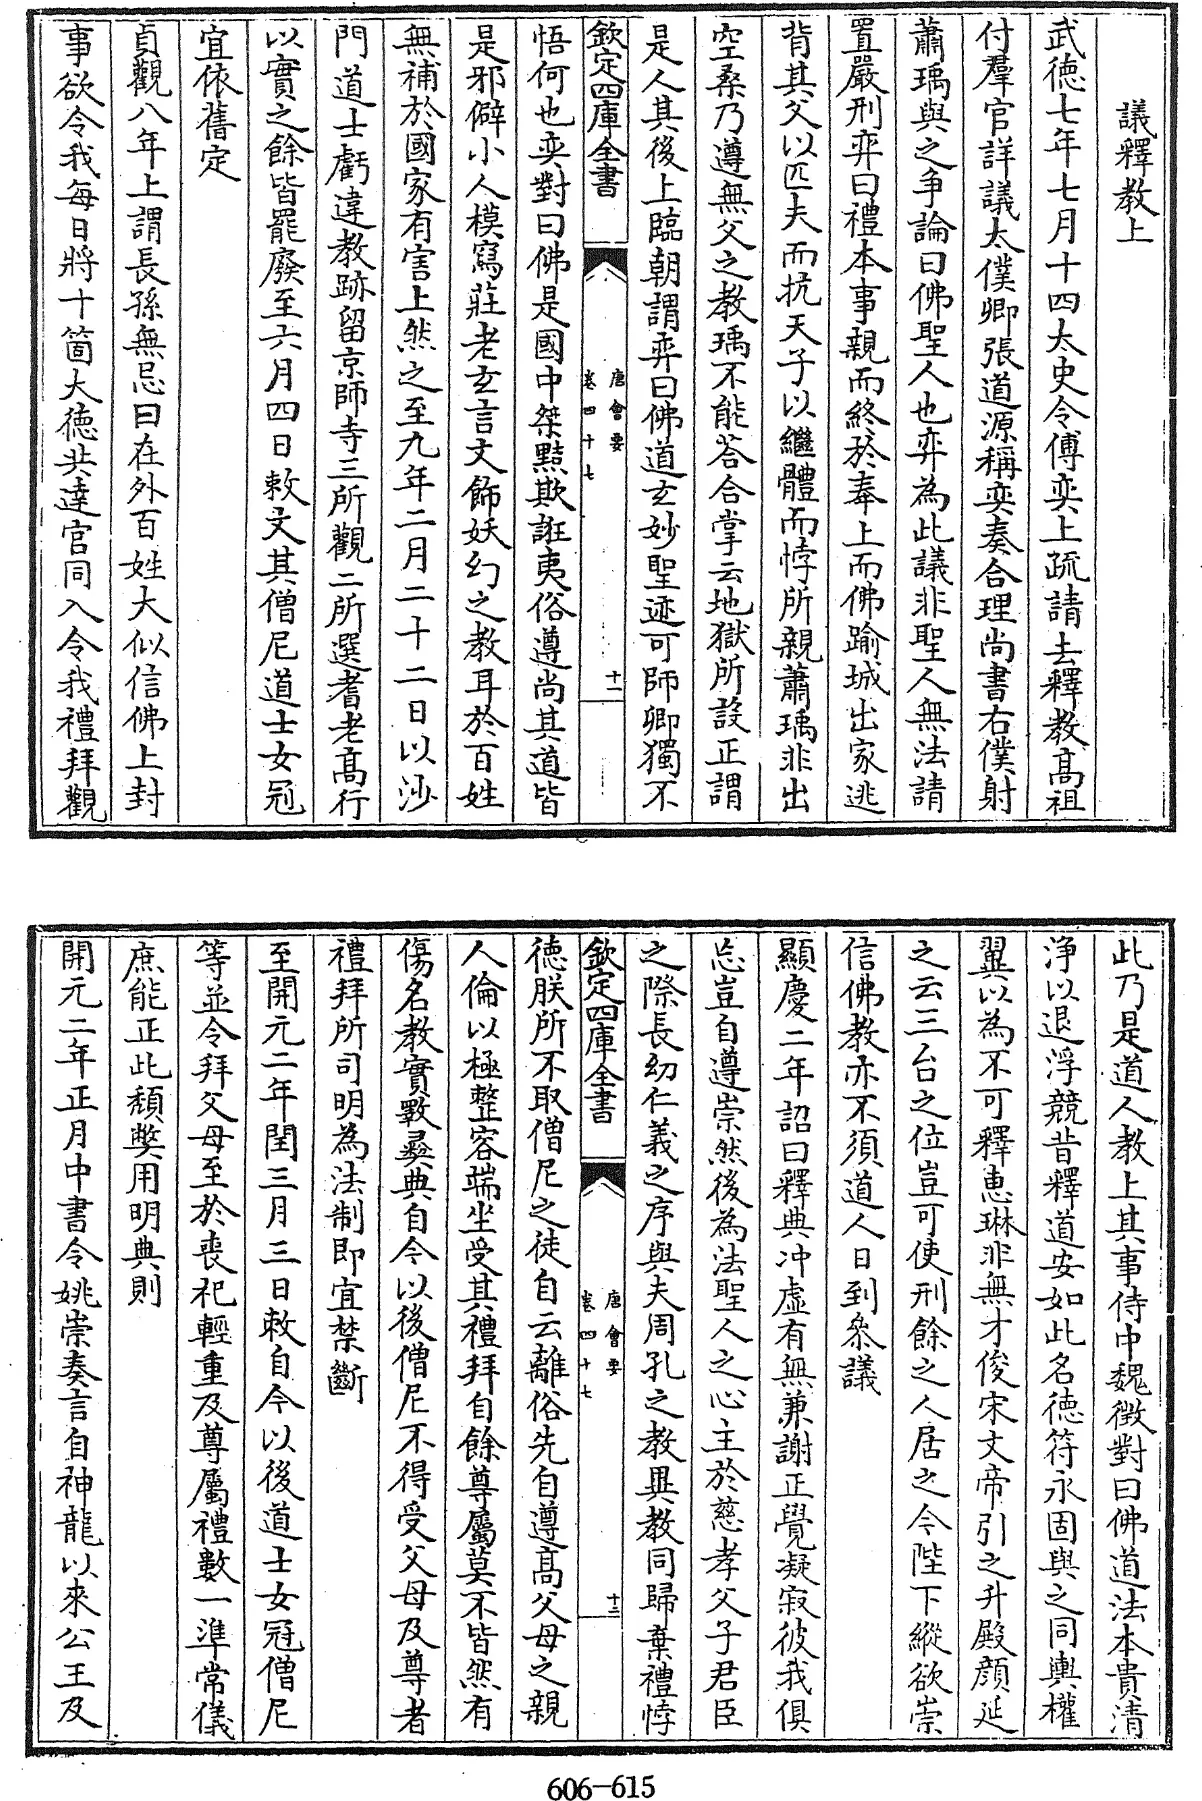 議釋教上
武徳七年七月十四太史令傅奕上疏請去釋教髙祖
付羣官詳議太僕卿張道源稱奕奏合理尚書右僕射
蕭瑀與之争論曰佛聖人也弈為此議非聖人無法請
置嚴刑弈曰禮本事親而終於奉上而佛踰城出家逃
背其父以匹夫而抗天子以繼體而悖所親蕭瑀非出
空桑乃遵無父之教瑀不能荅合掌云地獄所設正謂
是人其後上臨朝謂弈曰佛道玄妙聖迹可師卿獨不
欽定四庫全書
唐會要
卷四十七
十一
悟何也奕對曰佛是國中桀黠欺誑夷俗遵尚其道皆
是邪僻小人模寫莊老玄言文飾妖幻之教耳於百姓
無補於國家有害上然之至九年二月二十二日以沙
門道士虧違教跡留京師寺三所觀二所選耆老髙行
以實之餘皆罷廢至六月四日敕文其僧尼道士女冠
宜依舊定
貞觀八年上謂長孫無忌曰在外百姓大似信佛上封
事欲令我每日將十箇大徳共達官同入令我禮拜觀
此乃是道人教上其事侍中魏徴對曰佛道法本貴清
淨以退浮競昔釋道安如此名徳符永固與之同輿權
翼以為不可釋惠琳非無才俊宋文帝引之升殿顔延
之云三台之位豈可使刑餘之人居之今陛下縱欲崇
信佛教亦不須道人日到叅議
顯慶二年詔曰釋典冲虚有無兼謝正覺凝寂彼我俱
忘豈自遵崇然後為法聖人之心主於慈孝父子君臣
之際長幼仁義之序與夫周孔之教異教同歸棄禮悖
欽定四庫全書
唐會要
卷四十七
十二
徳朕所不取僧尼之徒自云離俗先自遵髙父母之親
人倫以極整容端坐受其禮拜自餘尊屬莫不皆然有
傷名教實斁彞典自今以後僧尼不得受父母及尊者
禮拜所司明為法制即宜禁斷
至開元二年閏三月三日敕自今以後道士女冠僧尼
等並令拜父母至於喪祀輕重及尊屬禮數一準常儀
庶能正此頽獘用明典則
開元二年正月中書令姚崇奏言自神龍以來公王及
606-615